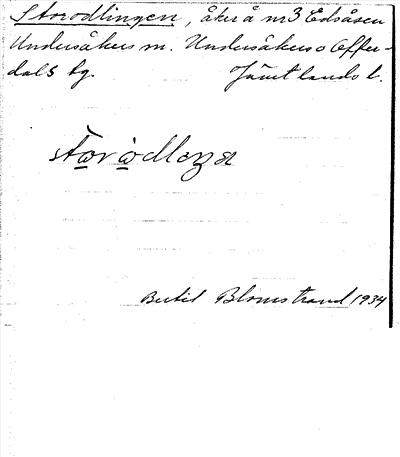 Storodlingen, åker å nr 3 Edsåsen
Undersåkers sn. Undersåkers o Offer-
dals tg. Jämtlands l.
Bertil Blomstrand 1934